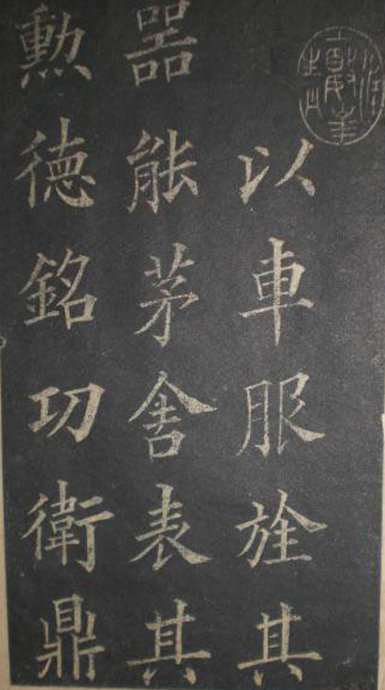 以車服旌其
器能茅舍表其
勳德銘功衛鼎